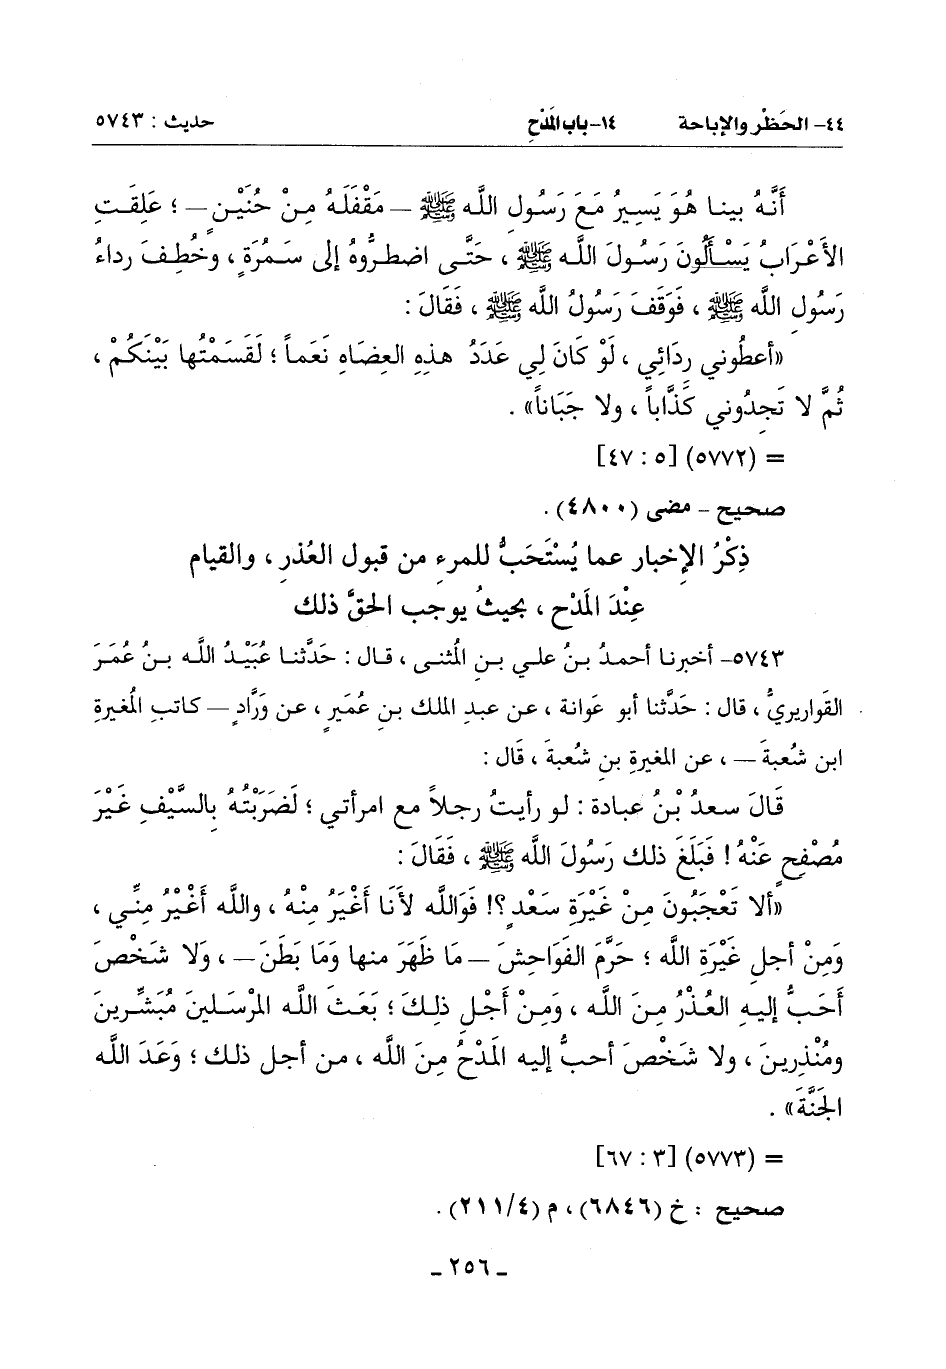 ٤٤- الحَظْر والإباحة ١٤-باب المَدْحِ حديث : ٥٧٤٣
أَنَّهُ بينـا هُوَ يَسِيرُ مَعَ رَسُولِ اللَّه ﷺ — مَقْفَلَهُ مِنْ حُنَيْنٍ — ؛ عَلِقَتِ
الأَعْرَابُ يَسْأَلُونَ رَسُولَ اللَّه ﷺ ، حَتَّى اضطرُّوهُ إلى سَمُرَةٍ ، وخُطِفَ رداءُ
رَسُولِ اللَّه ﷺ ، فَوَقَفَ رَسُولُ اللَّه ﷺ ، فَقَالَ :
«أعطُوني ردَائِي ، لَوْ كَانَ لِي عَدَدُ هذهِ العِضَاهِ نَعَماً ؛ لَقَسَمْتُها بَيْنَكُمْ ،
ثُمَّ لا تَجِدُوني كَذَّاباً ، ولا جَبَاناً» .
= (٥٧٧٢) [٥ : ٤٧]
صحيح - مضى (٤٨٠٠) .
ذِكْرُ الإخبار عما يُسْتَحَبُّ للمرءِ من قبول العُذرِ ، والقيام
عِنْدَ المَدْحِ ، بحيثُ يوجب الحقَّ ذلك
٥٧٤٣- أخبرنا أحمدُ بنُ علي بنِ المُثنى ، قال : حَدَّثنا عُبَيْدُ اللَّه بنُ عُمَرَ
القَواريريُّ ، قال : حَدَّثنا أبو عَوانة ، عن عبدِ الملك بنِ عُمَيرٍ ، عن وَرَّادٍ — كاتبِ المُغيرةِ
ابنِ شُعبةَ — ، عن المغيرةِ بنِ شُعبةَ ، قَال :
قَالَ سعدُ بْنُ عبادة : لو رأيتُ رجلاً مع امرأتي ؛ لَضَرَبْتُهُ بِالسَّيْفِ غَيْرَ
مُصْفِحٍ عَنْهُ ! فَبَلَغَ ذلك رَسُولَ اللَّه ﷺ ، فَقَالَ :
«ألا تَعْجَبُونَ مِنْ غَيْرَةِ سَعْدٍ ؟! فَوَاللَّهِ لأَنَا أَغْيَرُ مِنْهُ ، واللَّه أَغْيَرُ مِنِّي ،
وَمِنْ أجلِ غَيْرَةِ اللَّه ؛ حَرَّمَ الفَوَاحِشَ — مَا ظَهَرَ منها وَمَا بَطَنَ — ، وَلا شَخْصَ
أَحَبُّ إليهِ العُذْرُ مِنَ اللَّه ، وَمِنْ أَجْلِ ذلِكَ ؛ بَعَثَ اللَّه المُرْسَلينَ مُبَشِّرينَ
ومُنْذِرينَ ، ولا شَخْصَ أحبُّ إليه المَدْحُ مِنَ اللَّه ، من أجل ذلك ؛ وَعَدَ اللَّه
الجَنَّةَ» .
= (٥٧٧٣) [٣ : ٦٧]
صحيح : خ (٦٨٤٦) ، م (٢١١/٤) .
ـ ٢٥٦ ـ